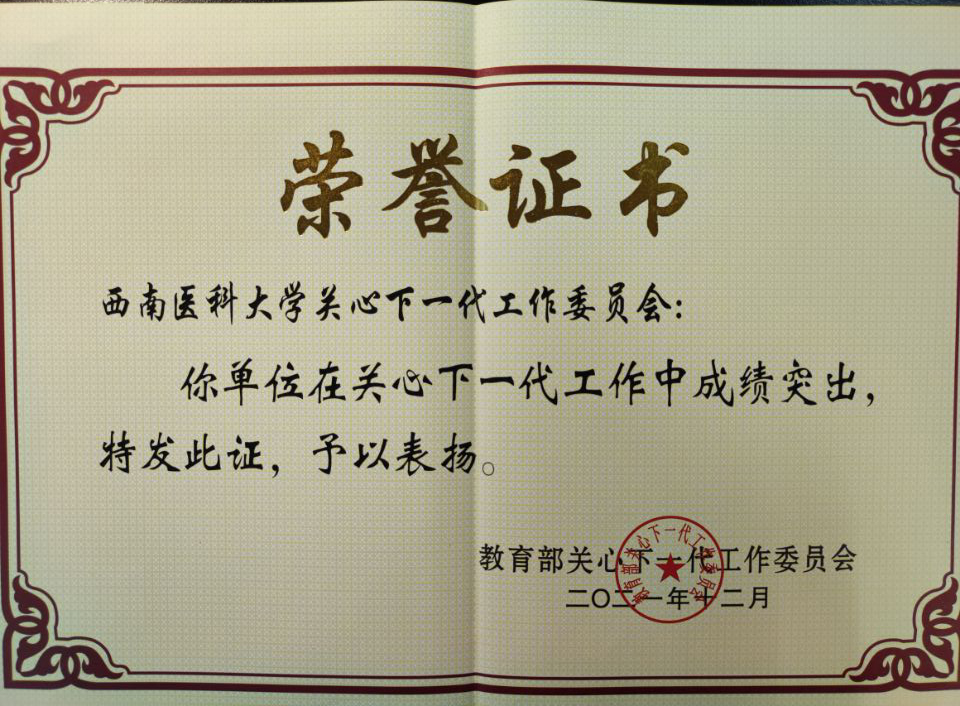 荣誉证书
西南医科大学关心下一代工作委员会:
你单位在关心下一代工作中成绩突出,
特发此证,予以表扬。
教育部关心下一代工作委员会
二〇二一年十二月
教育部关心下一代工作委员会